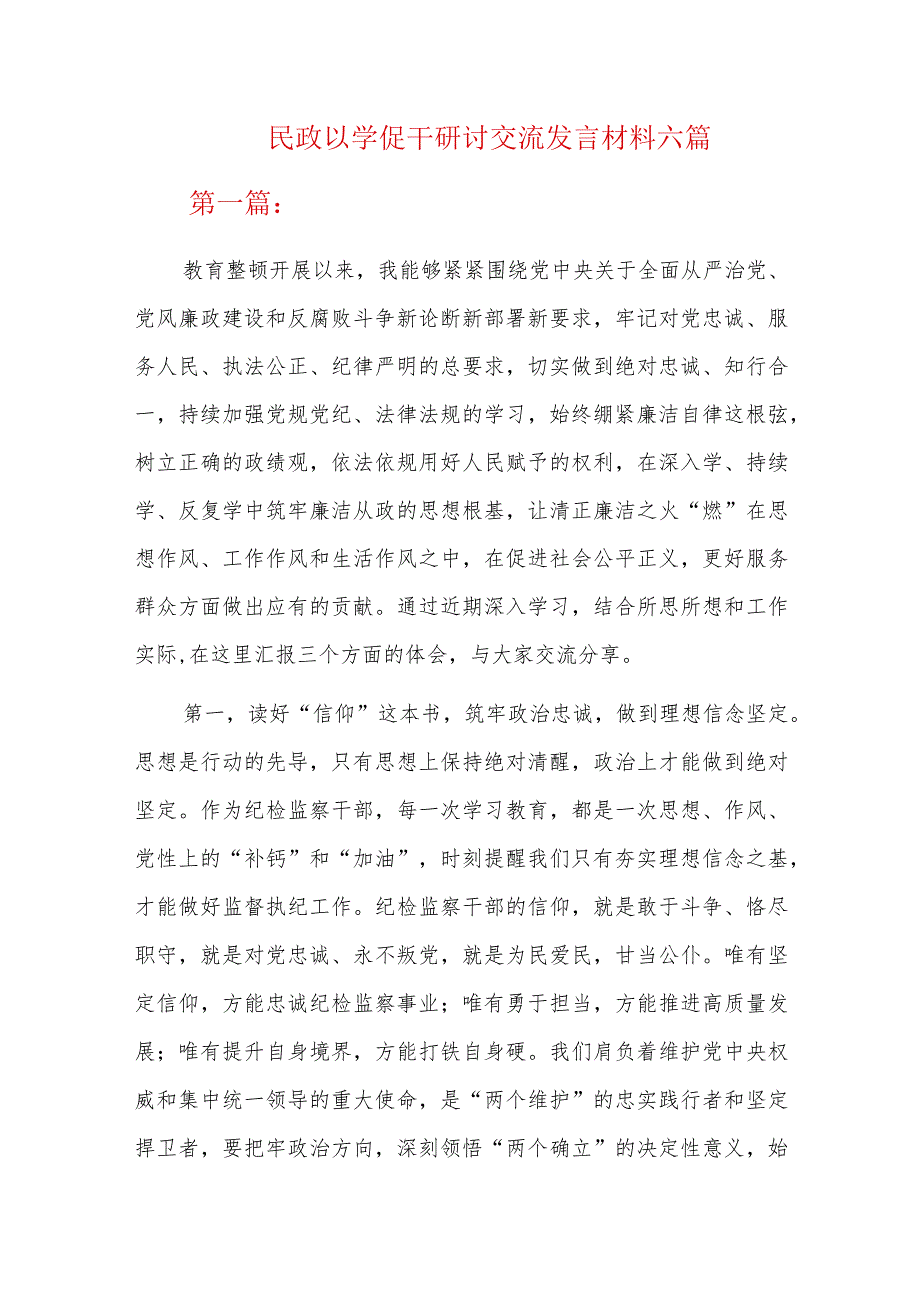 民政以学促干研讨交流发言材料六篇
第一篇：
教育整顿开展以来，我能够紧紧围绕党中央关于全面从严治党、
党风廉政建设和反腐败斗争新论断新部署新要求，牢记对党忠诚、服
务人民、执法公正、纪律严明的总要求，切实做到绝对忠诚、知行合
一，持续加强党规党纪、法律法规的学习，始终绷紧廉洁自律这根弦，
树立正确的政绩观，依法依规用好人民赋予的权利，在深入学、持续
学、反复学中筑牢廉洁从政的思想根基，让清正廉洁之火“燃”在思
想作风、工作作风和生活作风之中，在促进社会公平正义，更好服务
群众方面做出应有的贡献。通过近期深入学习，结合所思所想和工作
实际,在这里汇报三个方面的体会，与大家交流分享。
第一，读好“信仰”这本书，筑牢政治忠诚，做到理想信念坚定。
思想是行动的先导，只有思想上保持绝对清醒，政治上才能做到绝对
坚定。作为纪检监察干部，每一次学习教育，都是一次思想、作风、
党性上的“补钙”和“加油”，时刻提醒我们只有夯实理想信念之基，
才能做好监督执纪工作。纪检监察干部的信仰，就是敢于斗争、恪尽
职守，就是对党忠诚、永不叛党，就是为民爱民，甘当公仆。唯有坚
定信仰，方能忠诚纪检监察事业；唯有勇于担当，方能推进高质量发
展；唯有提升自身境界，方能打铁自身硬。我们肩负着维护党中央权
威和集中统一领导的重大使命，是“两个维护”的忠实践行者和坚定
捍卫者，要把牢政治方向，深刻领悟“两个确立”的决定性意义，始